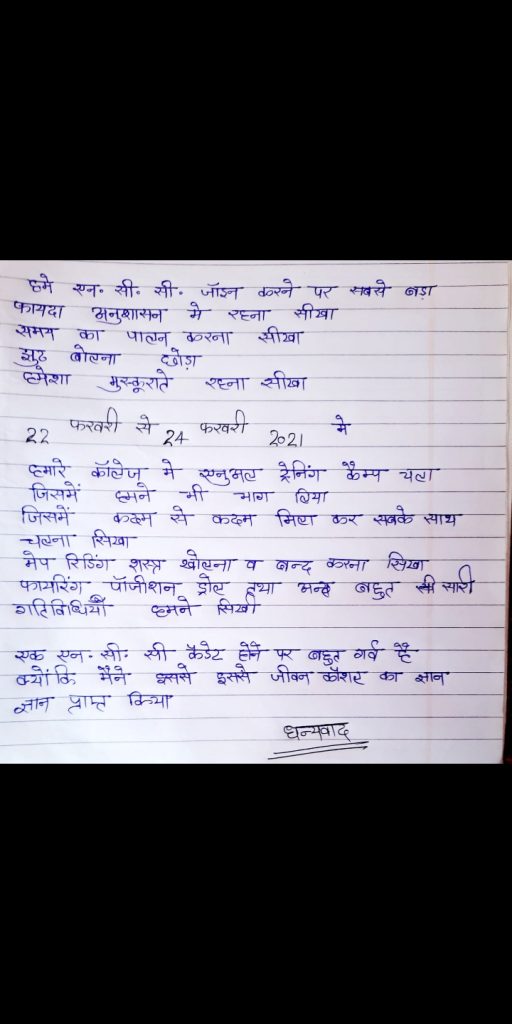 हमे एन. सी. सी. जॉइन करने पर सबसे बड़ा
फायदा अनुशासन मे रहना सीखा
समय का पालन करना सीखा
झुठ बोलना छोड़ा
हमेशा मुस्कूराते रहना सीखा
22 फरवरी से 24 फरवरी 2021 मे
हमारे कॉलेज मे एनुअल ट्रेनिंग कैम्प चला
जिसमें हमने भी भाग लिया
जिसमें कदम से कदम मिला कर सबके साथ
चलना सिखा
मेप रिडिंग शस्त्र खोलना व बन्द करना सिखा
फायरिंग पॉजीशन ड्रील तथा अन्य बहुत सारी
गतिविधियाँ हमने सिखी
एक एन. सी. सी कैडेट होने पर बहुत गर्व है
क्योंकि मैने इससे इससे जीवन कौशल का ज्ञान
ज्ञान प्राप्त किया
धन्यवाद